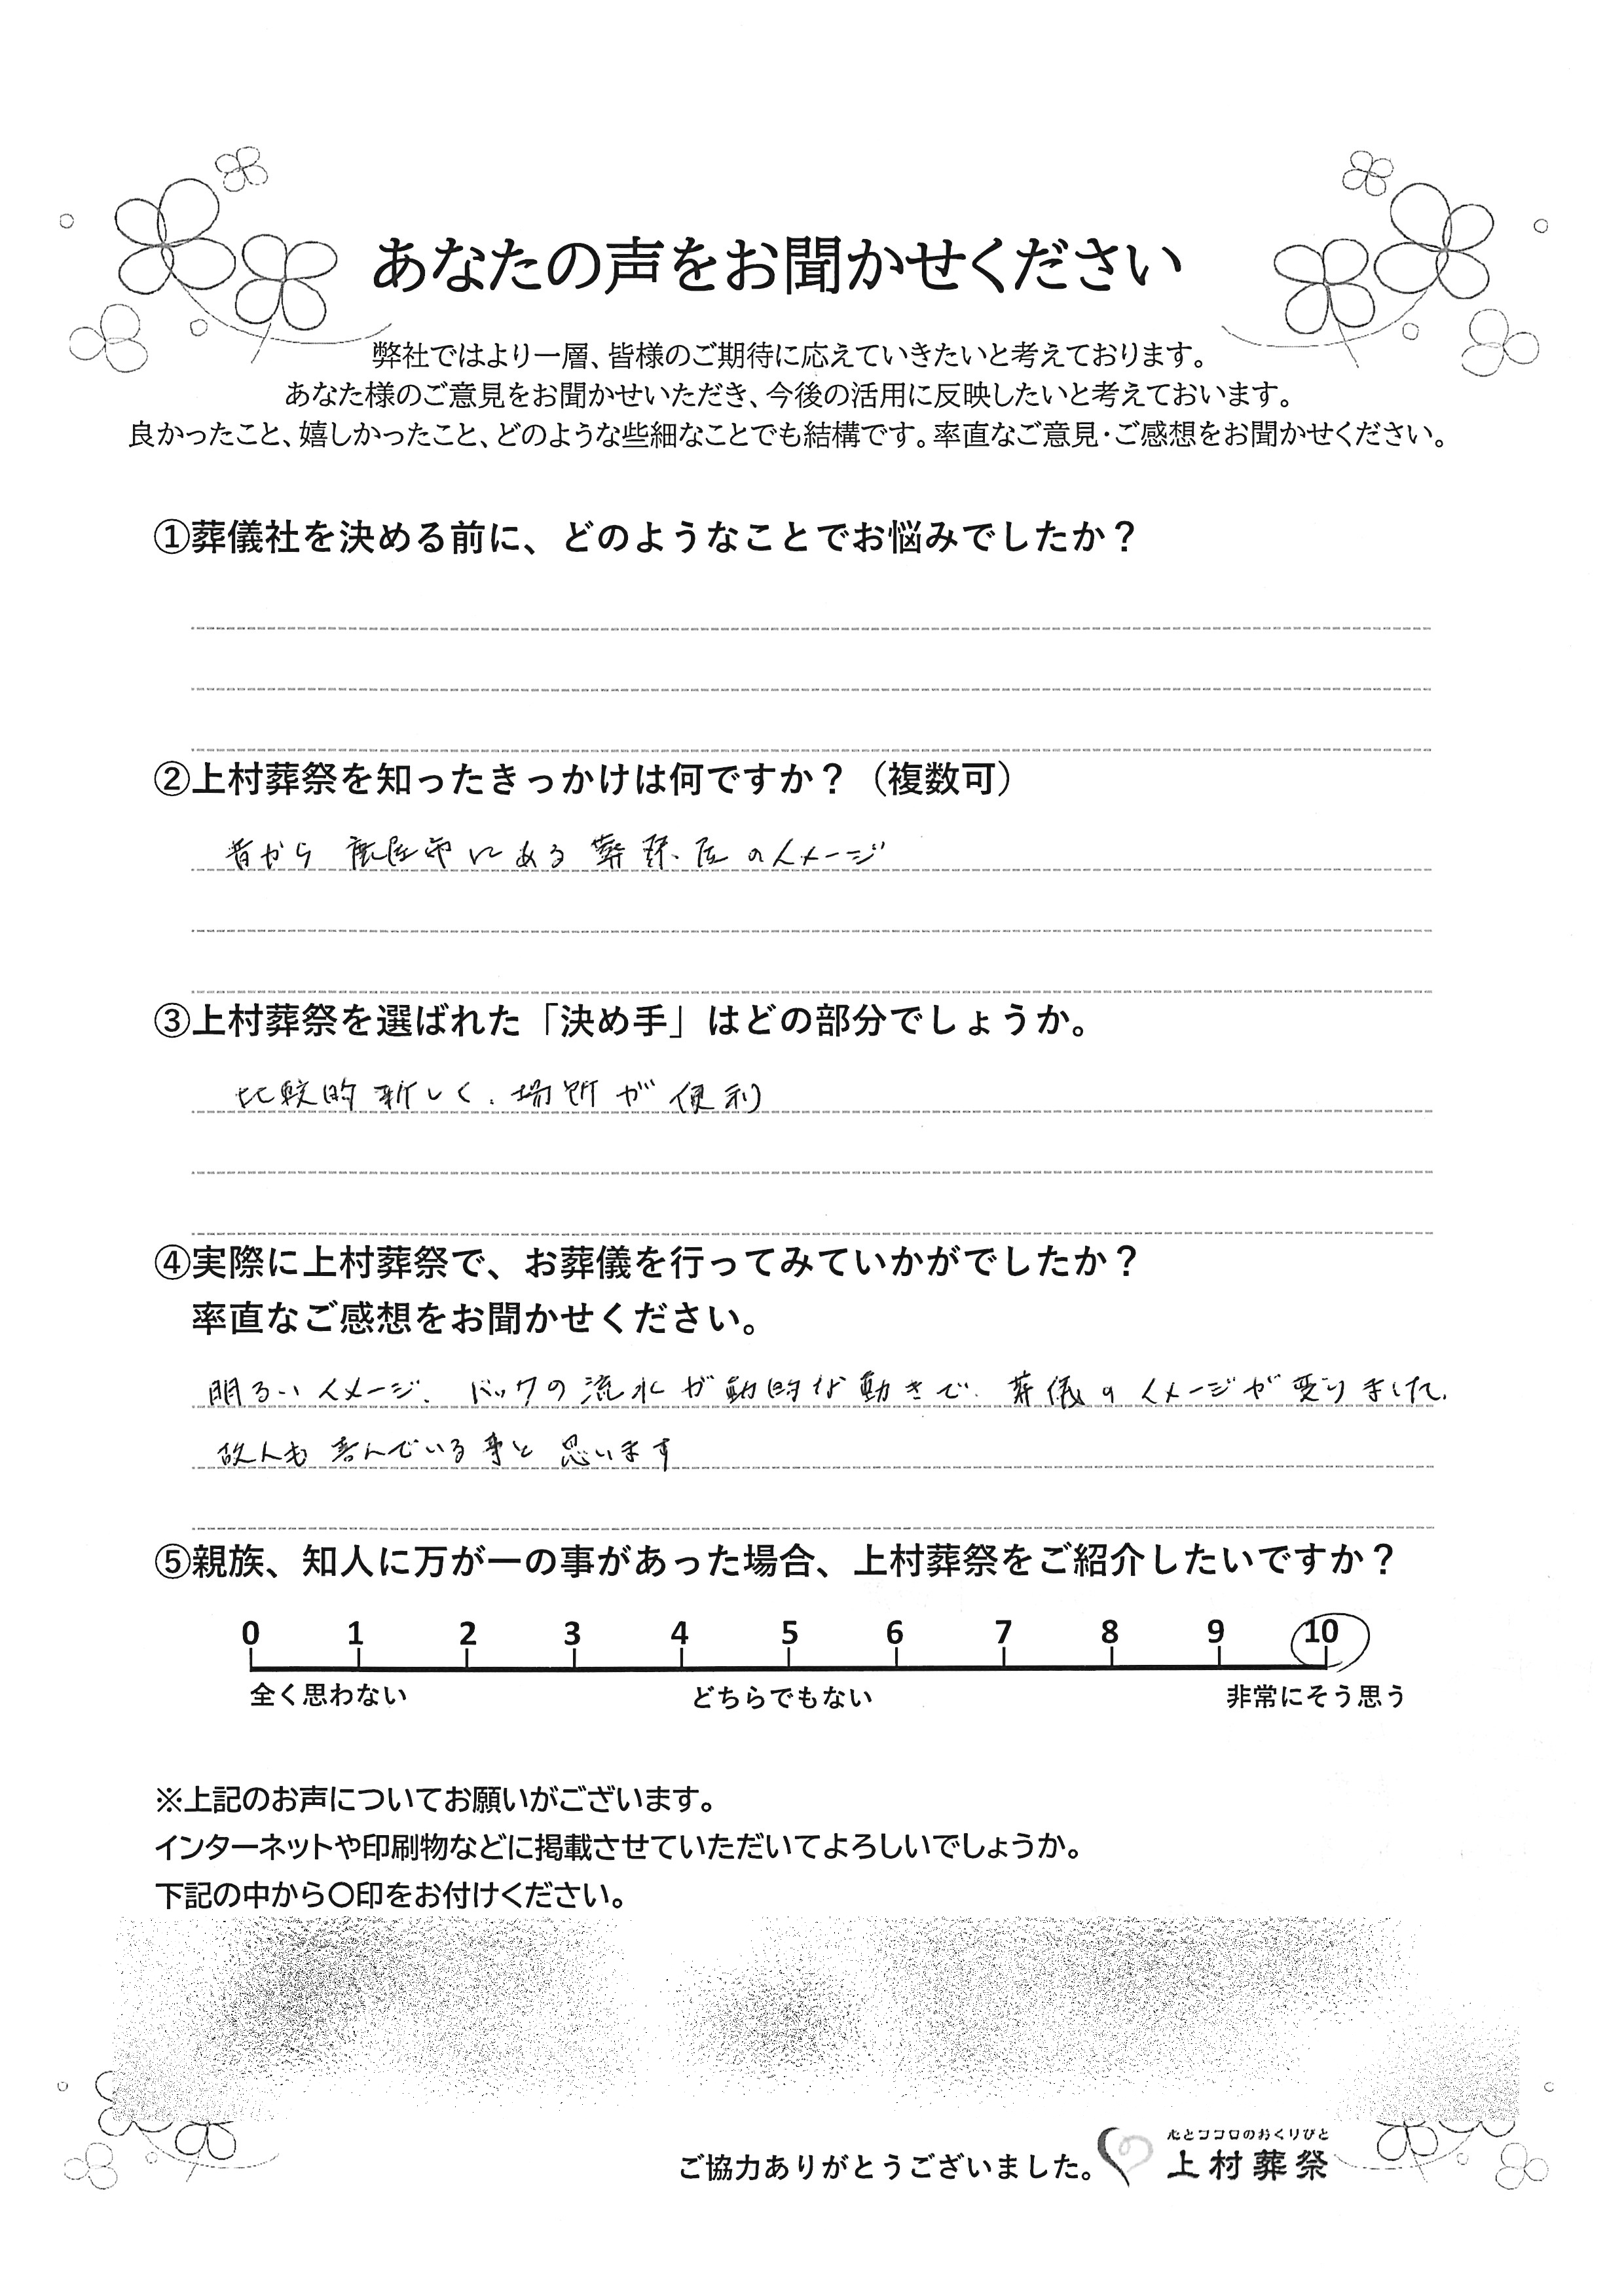 あなたの声をお聞かせください
弊社ではより一層、皆様のご期待に応えていきたいと考えております。
あなた様のご意見をお聞かせいただき、今後の活用に反映したいと考えておいます。
良かったこと、嬉しかったこと、どのような些細なことでも結構です。率直なご意見・ご感想をお聞かせください。
①葬儀社を決める前に、どのようなことでお悩みでしたか？
②上村葬祭を知ったきっかけは何ですか？（複数可）
昔から 鹿屋市にある 葬祭屋のイメージ
③上村葬祭を選ばれた「決め手」はどの部分でしょうか。
比較的新しく、場所が便利
④実際に上村葬祭で、お葬儀を行ってみていかがでしたか？
率直なご感想をお聞かせください。
明るいイメージ、バックの流水が動的な動きで、葬儀のイメージが変りました。
故人も喜んでいる事と思います
⑤親族、知人に万が一の事があった場合、上村葬祭をご紹介したいですか？
0 1 2 3 4 5 6 7 8 9 10
全く思わない どちらでもない 非常にそう思う
※上記のお声についてお願いがございます。
インターネットや印刷物などに掲載させていただいてよろしいでしょうか。
下記の中から〇印をお付けください。
心とココロのおくりびと
ご協力ありがとうございました。 上村葬祭